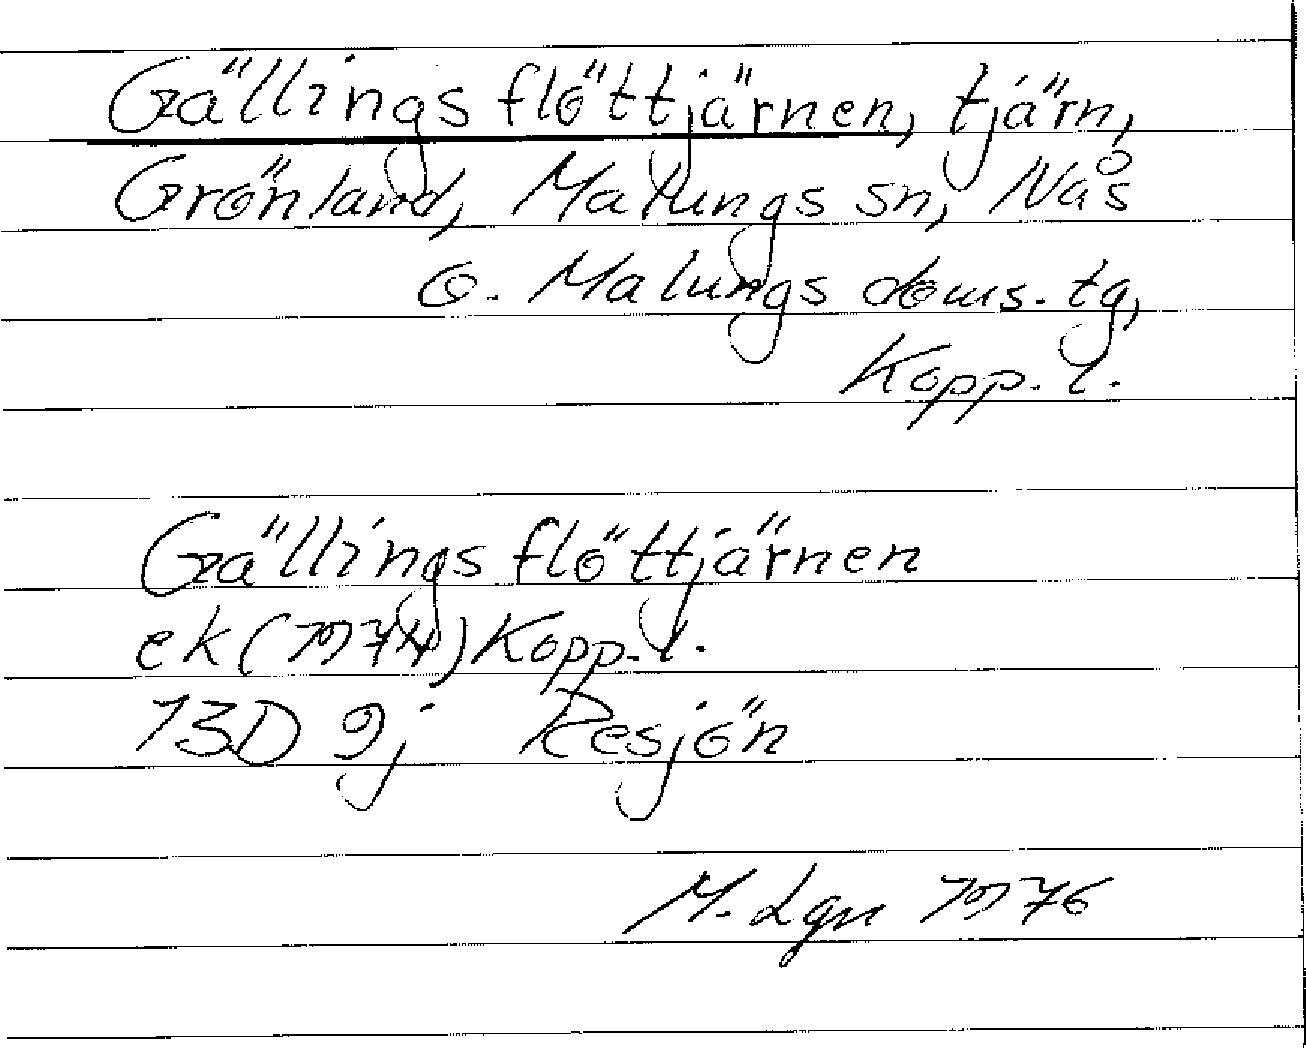 Gällingsflöttjärnen, tjärn,
Grönland, Malungs sn, Nås
o. Malungs doms. tg,
Kopp. l.
Gällingsflöttjärnen
ek (1974) Kopp. l.
13D 9j Resjön
M. Lgn 1976